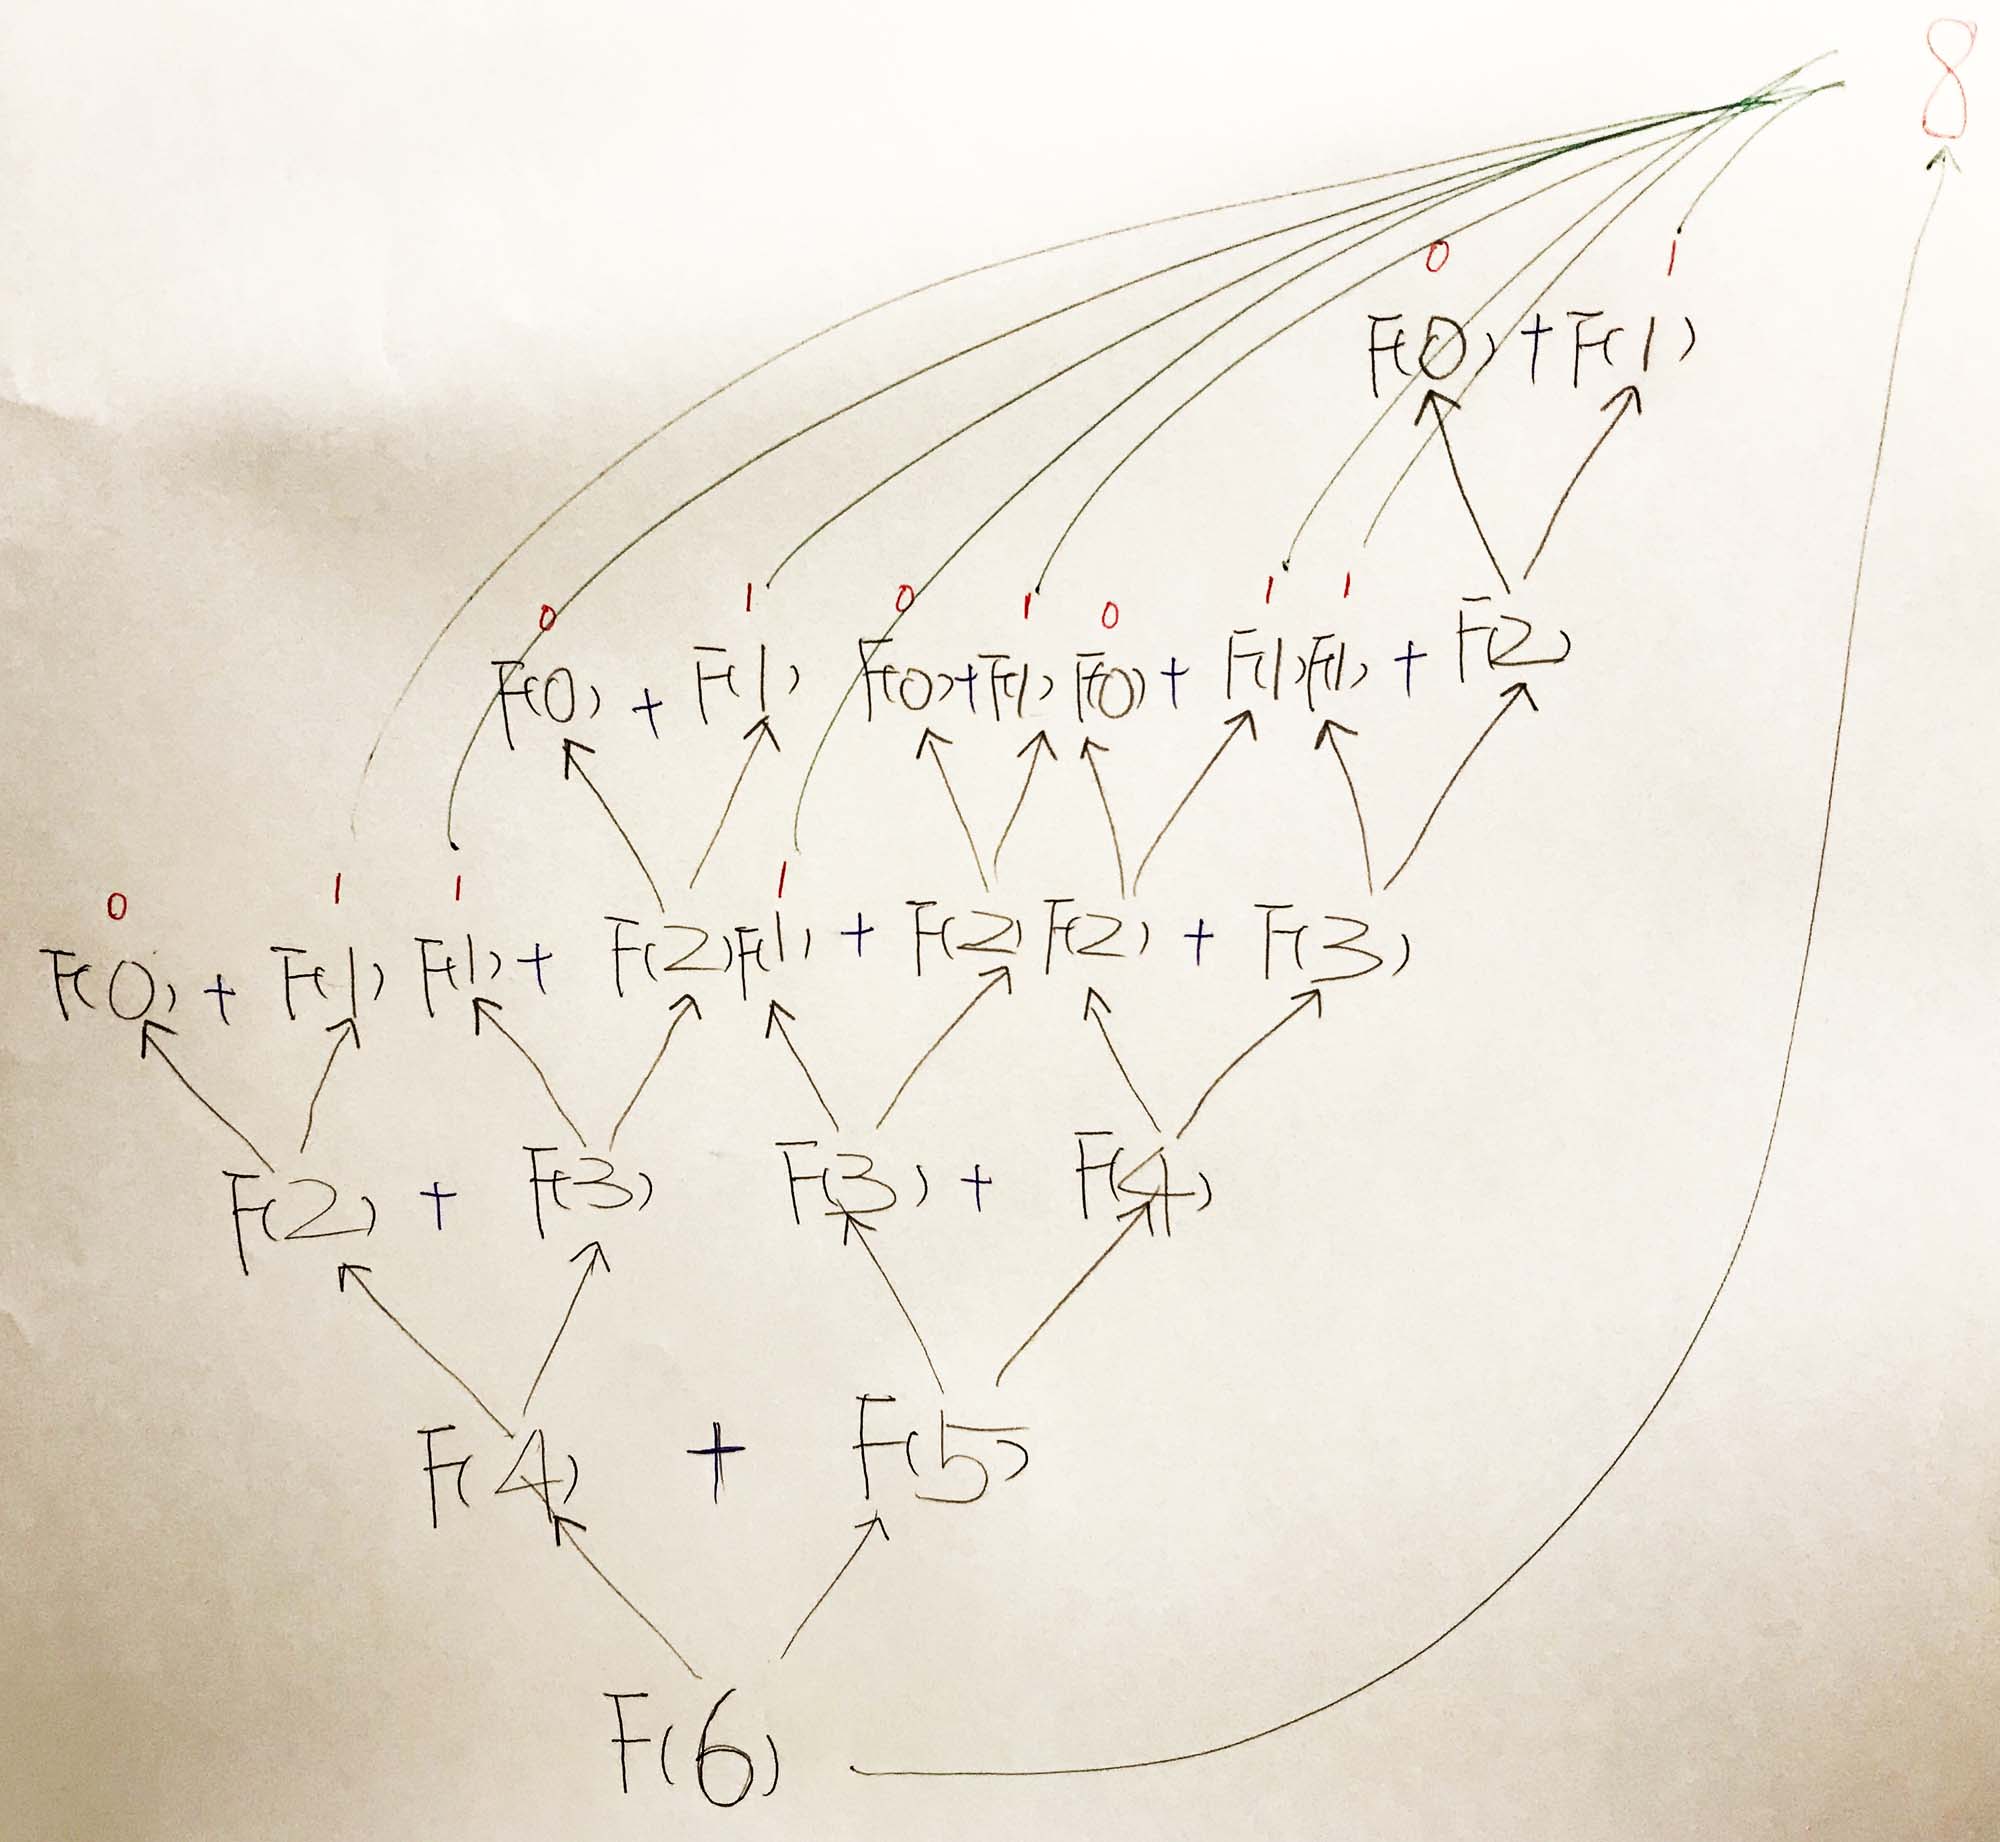 8
0 1
F(0) + F(1)
0 1 0 1 0 1 1
F(0) + F(1) F(0) + F(1) F(0) + F(1) F(1) + F(2)
0 1 1 1
F(0) + F(1) F(1) + F(2) F(1) + F(2) F(2) + F(3)
F(2) + F(3) F(3) + F(4)
F(4) + F(5)
F(6)